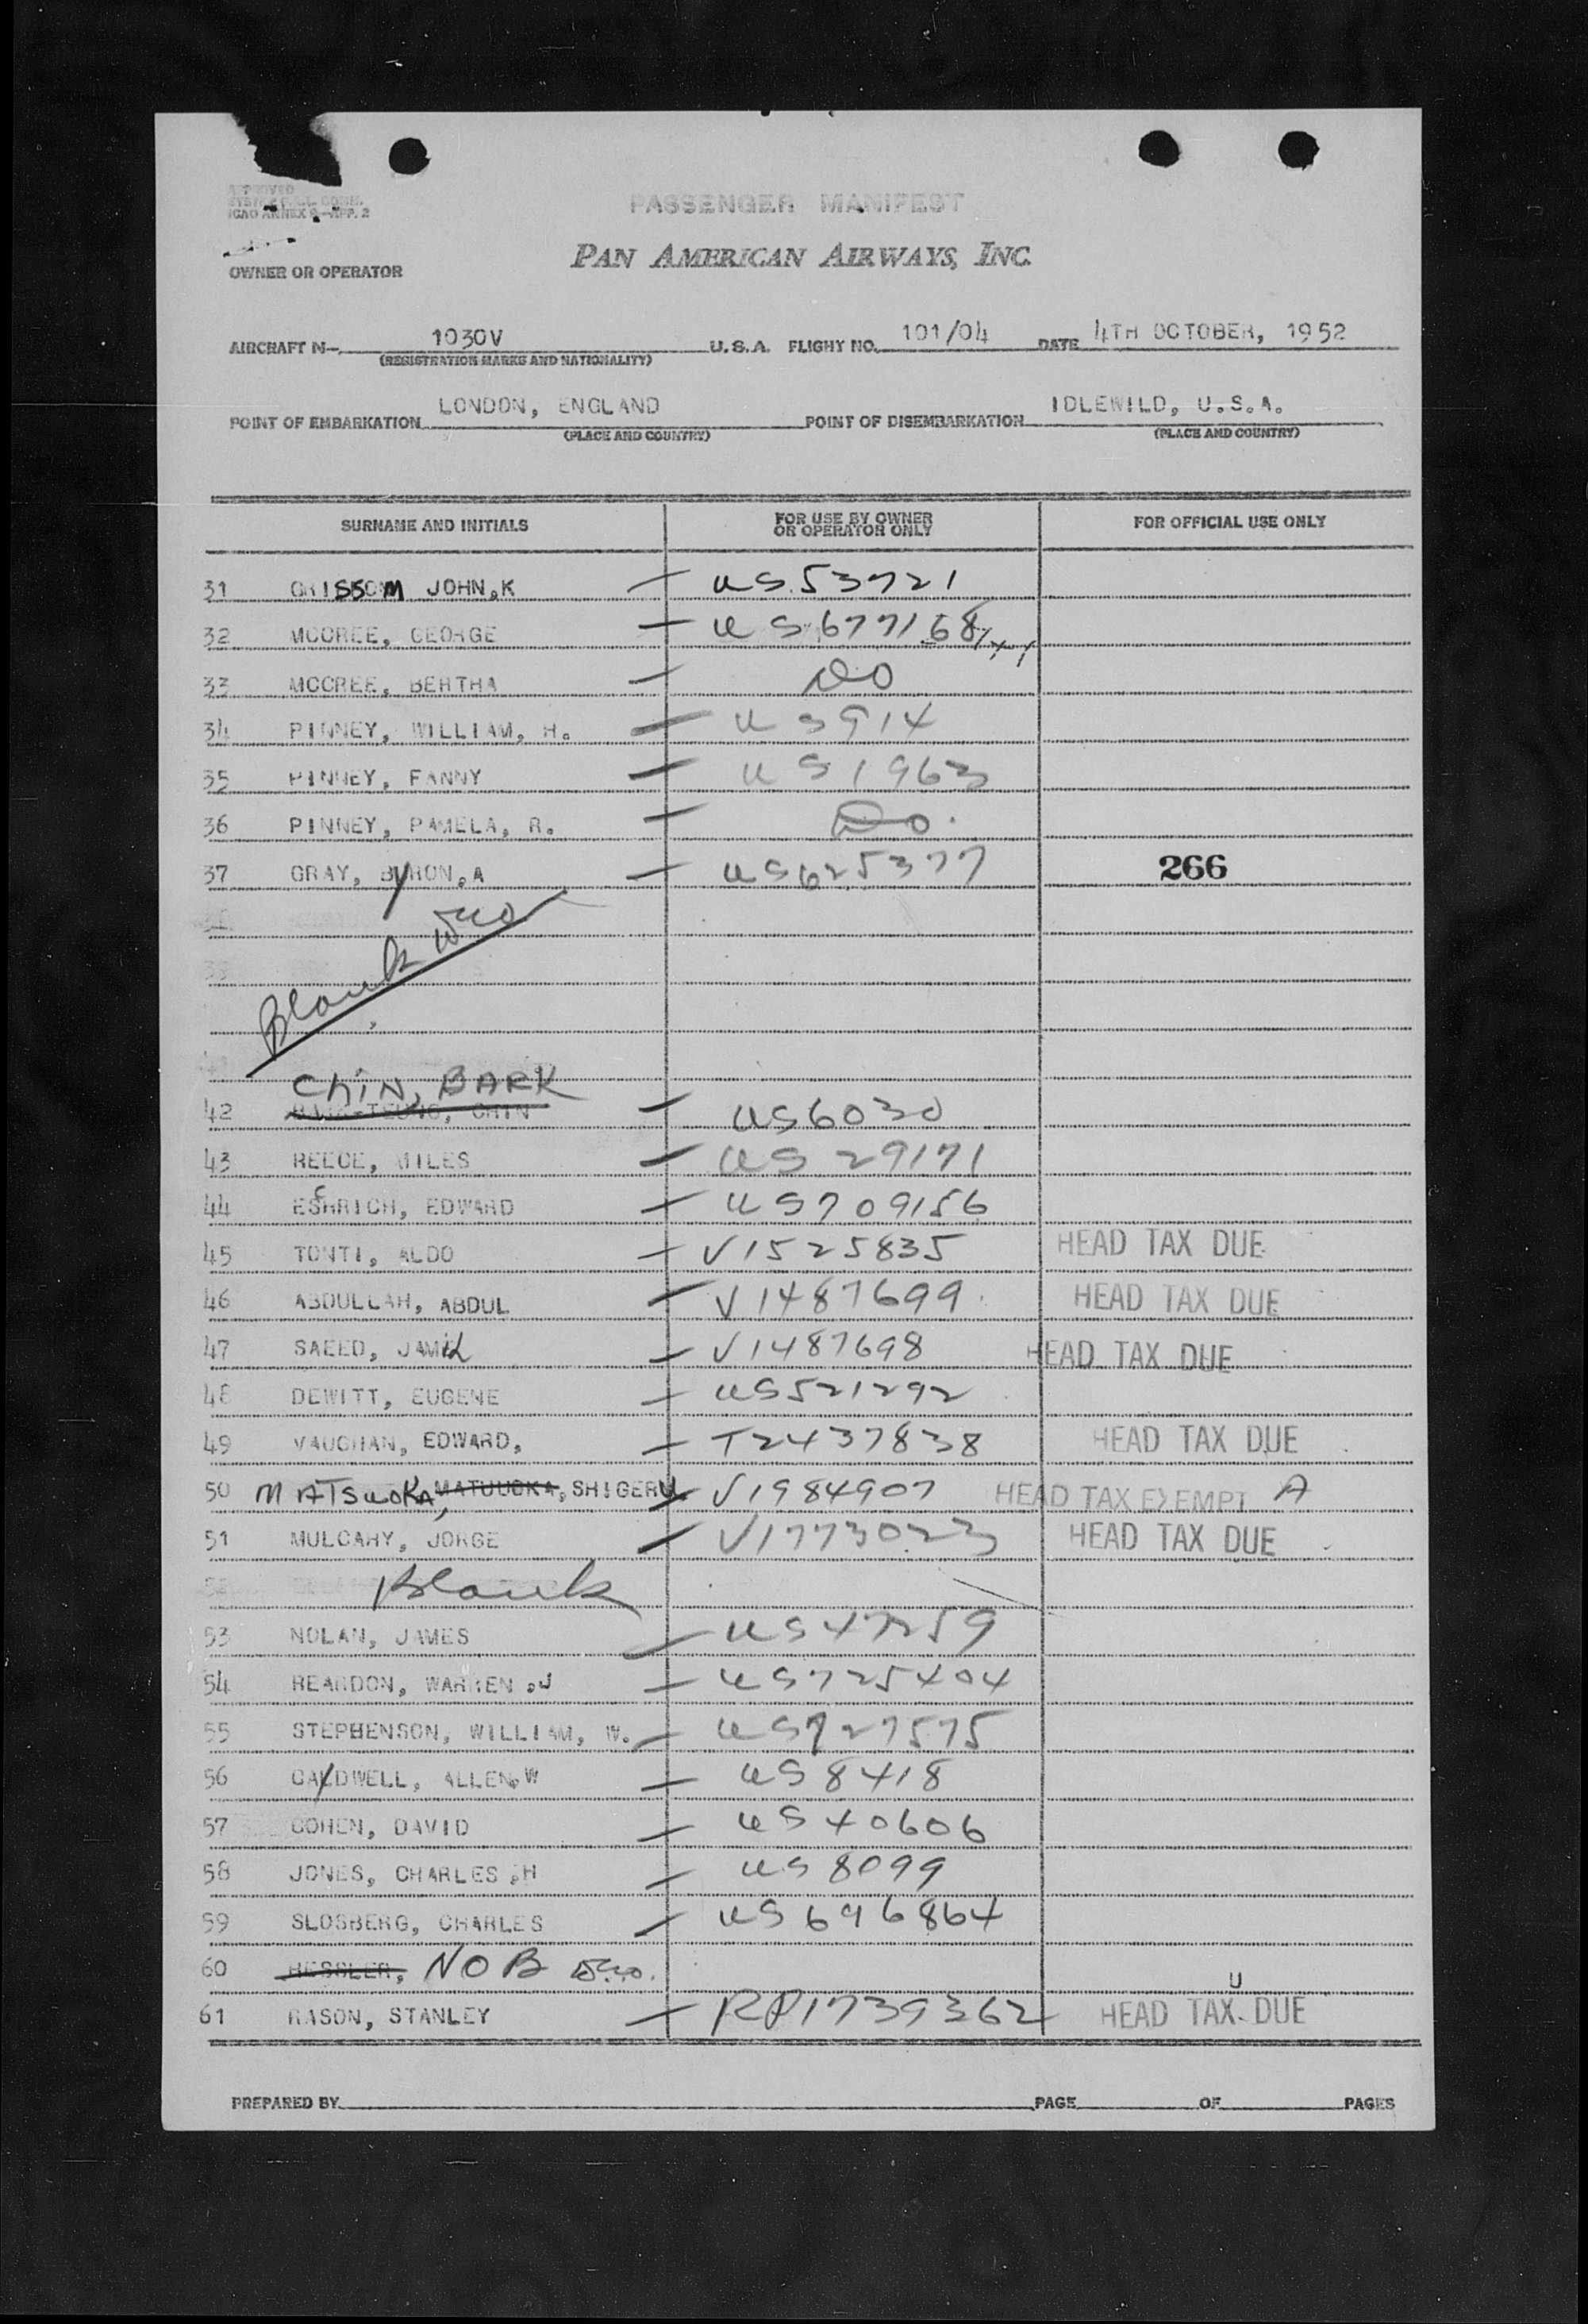 APPROVED
ICAO ANNEX 9-APP. 2
PASSENGER MANIFEST
PAN AMERICAN AIRWAYS, INC.
OWNER OR OPERATOR
AIRCRAFT N- 1030V U.S.A. FLIGHT NO. 101/04 DATE 4TH OCTOBER, 1952
(REGISTRATION MARKS AND NATIONALITY)
POINT OF EMBARKATION LONDON, ENGLAND POINT OF DISEMBARKATION IDLEWILD, U.S.A.
(PLACE AND COUNTRY) (PLACE AND COUNTRY)
SURNAME AND INITIALS FOR USE BY OWNER OR OPERATOR ONLY FOR OFFICIAL USE ONLY
31 GRISSOM JOHN,K — US 53721
32 MCCREE, GEORGE — US 677168
33 MCCREE, BERTHA — DO
34 PINNEY, WILLIAM, H. — US 914
35 PINNEY, FANNY — US 1963
36 PINNEY, PAMELA, R. — Do.
37 GRAY, BYRON,A — US 625377 266
Blank
CHIN, BARK
42 — US 6030
43 REECE, MILES — US 29171
44 ESCHRICH, EDWARD — US 709156
45 TONTI, ALDO — V1525835 HEAD TAX DUE
46 ABDULLAH, ABDUL — V1487699 HEAD TAX DUE
47 SAEED, JAMIL — V1487698 HEAD TAX DUE
48 DEWITT, EUGENE — US 521292
49 VAUGHAN, EDWARD, — T2437838 HEAD TAX DUE
50 MATSUOKA, MATUUOKA, SHIGERU V1984907 HEAD TAX EXEMPT A
51 MULCAHY, JORGE — V1773023 HEAD TAX DUE
52 Blank
53 NOLAN, JAMES — US 47259
54 REARDON, WARREN ,J — US 725404
55 STEPHENSON, WILLIAM, W. — US 727575
56 CALDWELL, ALLEN,W — US 8418
57 COHEN, DAVID — US 40606
58 JONES, CHARLES ,H — US 8099
59 SLOSBERG, CHARLES — US 696864
60 HESSLER, NOB
U
61 RASON, STANLEY — RP1739362 HEAD TAX DUE
PREPARED BY PAGE OF PAGES